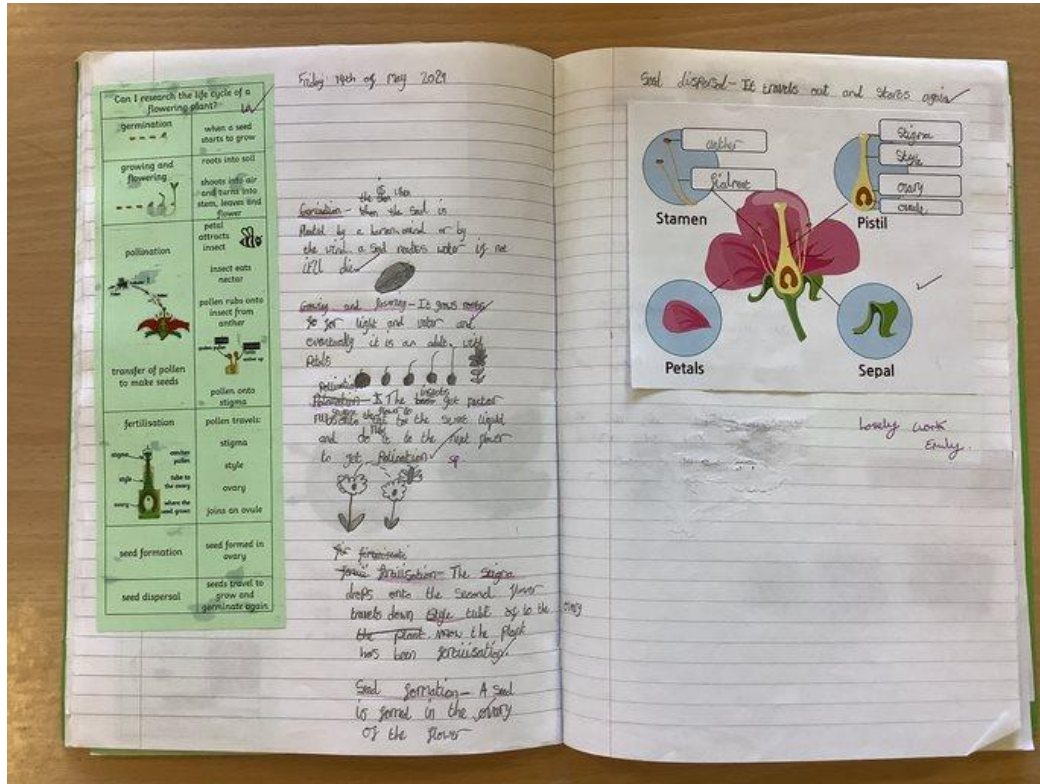 Can I research the life cycle of a
flowering plant?
germination
when a seed
starts to grow
growing and
flowering
roots into soil
shoots into air
and turns into
stem, leaves and
flower
pollination
petal
attracts
insect
insect eats
nectar
pollen rubs onto
insect from
anther
transfer of pollen
to make seeds
pollen onto
stigma
fertilisation
pollen travels:
stigma
style
ovary
joins an ovule
stigma
catches
pollen
style
tube to
the ovary
ovary
where the
seed grows
seed formation
seed formed in
ovary
seed dispersal
seeds travel to
grow and
germinate again
Friday 14th of May 2021
the seed is
planted by a human and or by
the wind. a seed needes water if not
it'll die
Growing and - It grows roots
for light and water and
eventually it is an adult with
Petals
Pollination
The insects get
for the sweet liquid
and do it to the next flower
to get Polination sp
fertilisation - The Stigma
drops onto the second flower
travels down Style tube to the ovary
the plant. now the Plant
has been
Seed formation - A seed
is formed in the ovary
of the flower
Seed dispersal - It travels out and starts again
anther
Stamen
Stigma
Style
ovary
ovule
Pistil
Petals
Sepal
Lovely work
Emily.